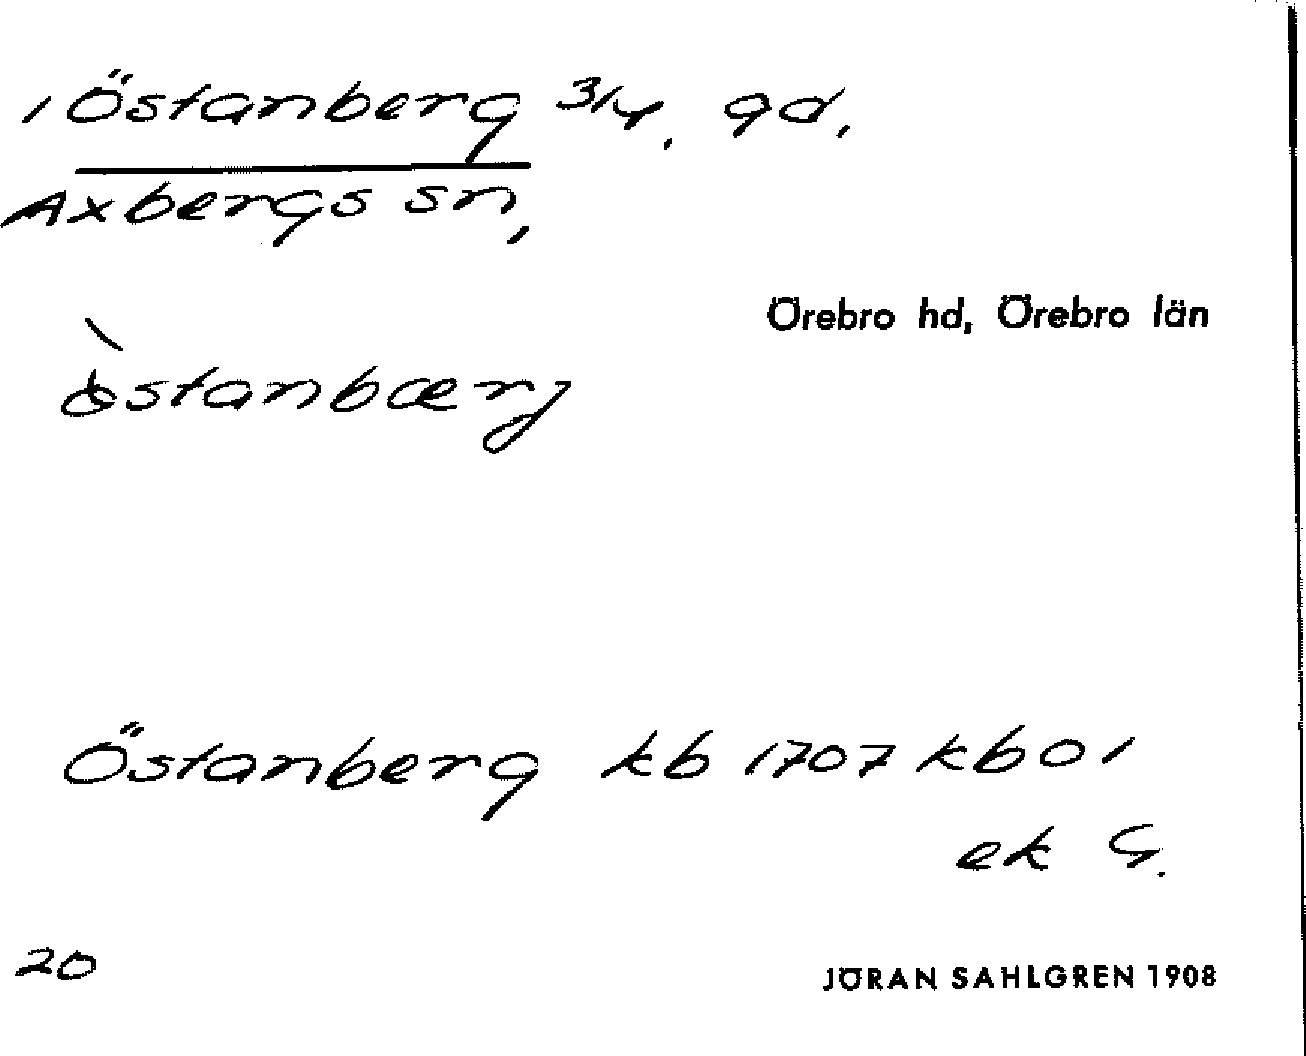 1 Östanberg 3/4, gd,
Axbergs sn,
Örebro hd, Örebro län
òstanbærj
Östanberg kb 1707 kb 01
ek G.
20
JÖRAN SAHLGREN 1908